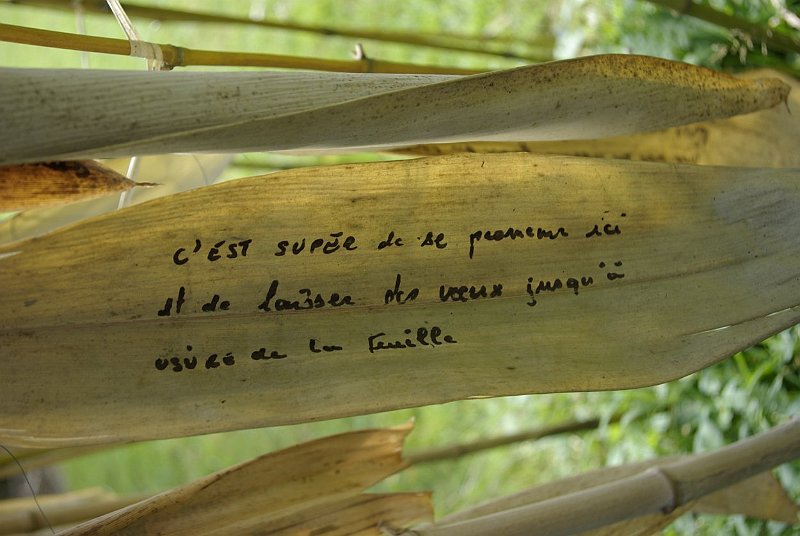 C'EST SUPER de se promener ici
et de laisser des vœux jusqu'à
USURE de la feuille